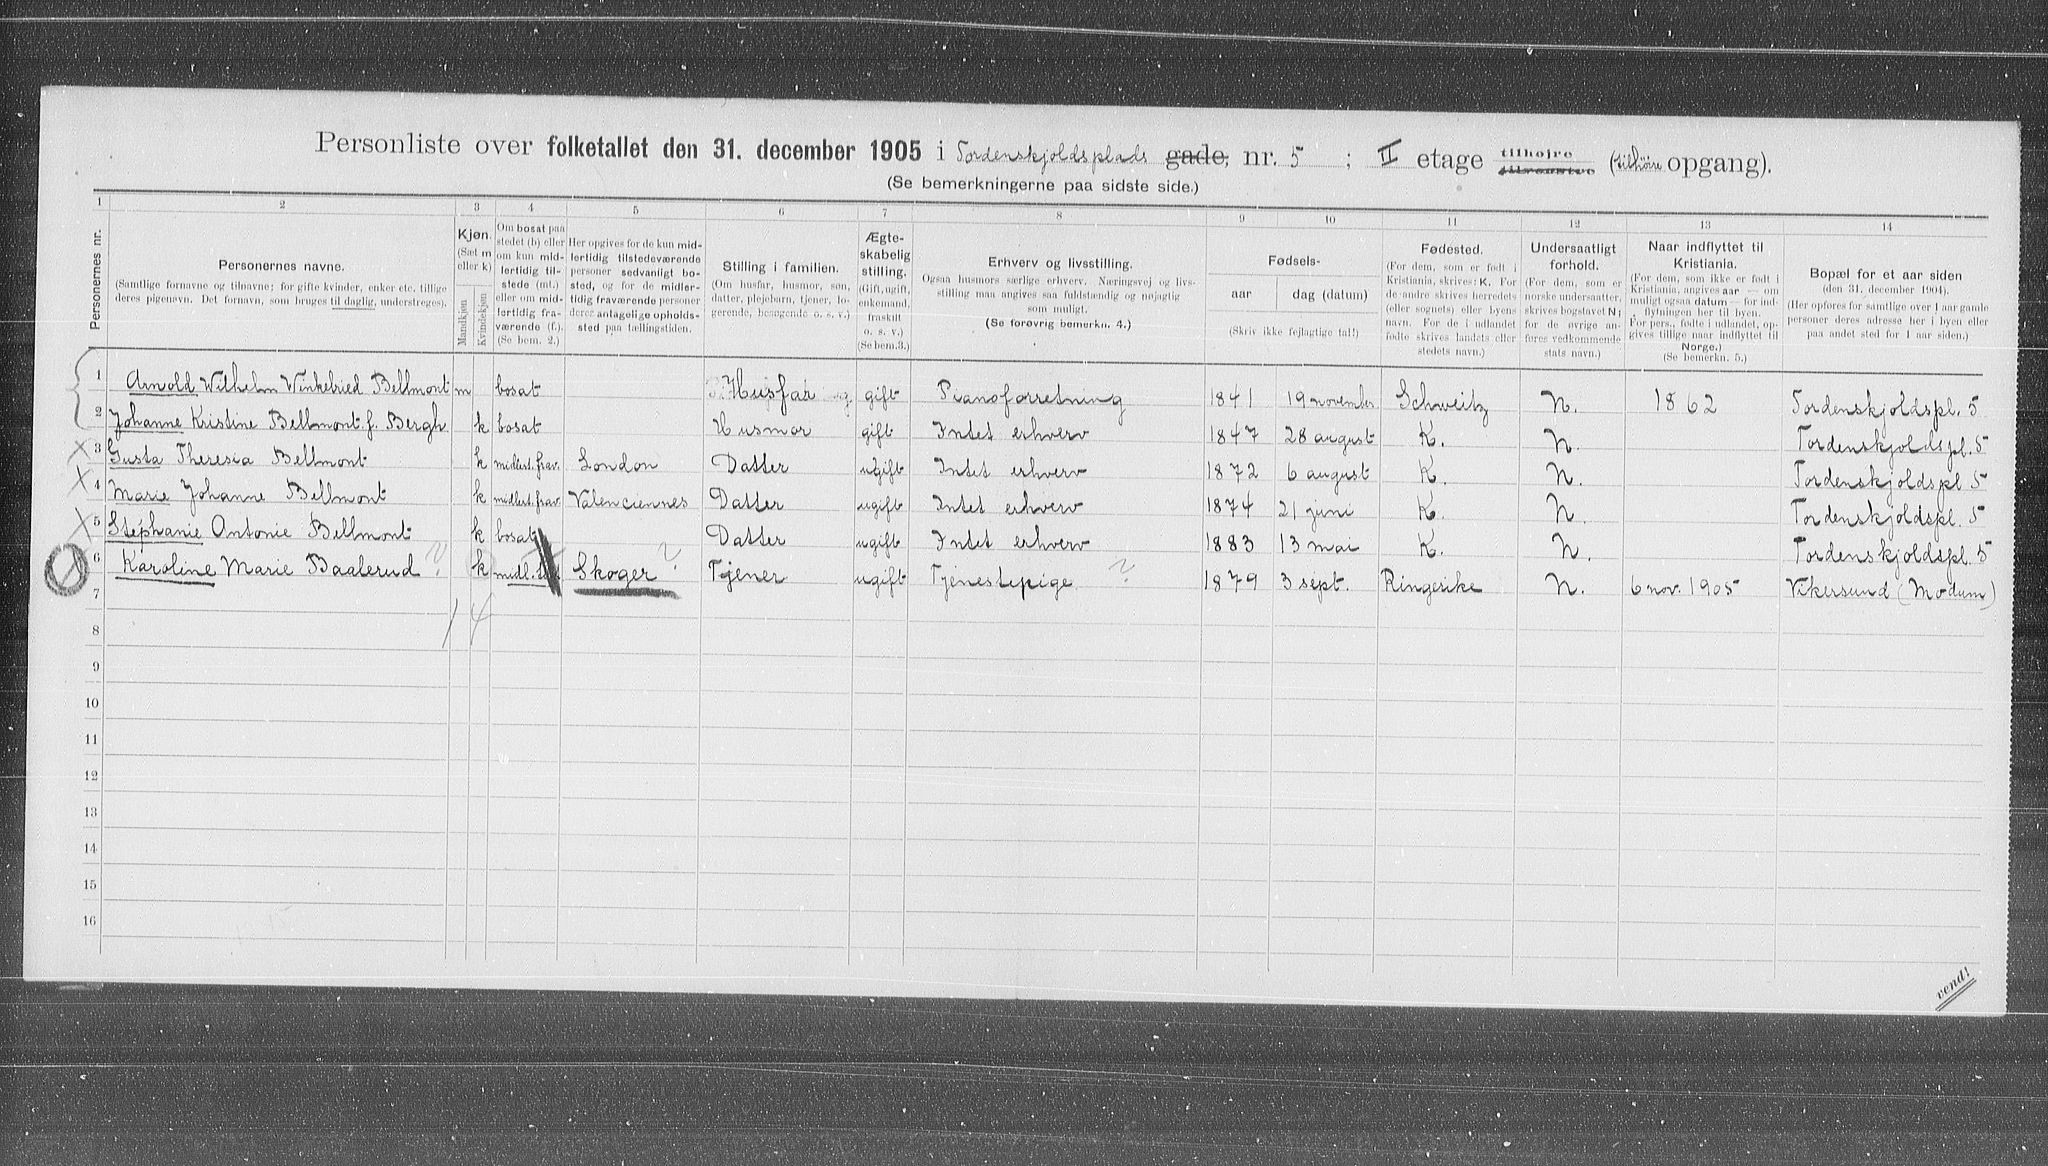 Personliste over folketallet den 31. december 1905 i Tordenskjoldsplads gade, nr. 5 ; II etage tilhøjre tilvenstre (tilhøire opgang).
(Se bemerkningerne paa sidste side.)
1 2 3 4 5 6 7 8 9 10 11 12 13 14
Personernes nr.
Personernes navne.
(Samtlige fornavne og tilnavne; for gifte kvinder, enker etc. tillige
deres pigenavn. Det fornavn, som bruges til daglig, understreges).
Kjøn.
(Sæt m
eller k)
Mandkjøn
Kvindekjøn
Om bosat paa
stedet (b) eller
om kun mid-
lertidig til-
stede (mt.)
eller om mid-
lertidig fra-
værende (f.).
(Se bem. 2.)
Her opgives for de kun mid-
lertidig tilstedeværende
personer sedvanligt bo-
sted, og for de midler-
tidig fraværende personer
deres antagelige opholds-
sted paa tællingstiden.
Stilling i familien.
(Om husfar, husmor, søn,
datter, plejebarn, tjener, lo-
gerende, besøgende o. s. v.)
Ægte-
skabelig
stilling.
(Gift, ugift,
enkemand,
fraskilt
o. s. v.)
(Se bem.3.)
Erhverv og livsstilling.
Ogsaa husmors særlige erhverv. Næringsvej og livs-
stilling maa angives saa fuldstændig og nøjagtig
som muligt.
(Se forøvrig bemerkn. 4.)
Fødsels-
aar dag (datum)
(Skriv ikke fejlagtige tal!)
Fødested.
(For dem, som er født i
Kristiania, skrives: K. For
de andre skrives herredets
(eller sognets) eller byens
navn. For de i udlandet
fødte skrives landets eller
stedets navn.)
Undersaatligt
forhold.
(For dem, som er
norske undersaatter,
skrives bogstavet N;
for de øvrige an-
føres vedkommende
stats navn.)
Naar indflyttet til
Kristiania.
(For dem, som ikke er født i
Kristiania, angives aar — om
muligt ogsaa datum — for ind-
flytningen her til byen.
For pers., fødte i udlandet, op-
gives tillige naar indflyttet til
Norge.)
(Se bemerkn. 5.)
Bopæl for et aar siden
(den 31. december 1904).
(Her opføres for samtlige over 1 aar gamle
personer deres adresse her i byen eller
paa andet sted for 1 aar siden.)
1 Arnold Wilhelm Winkelried Bellmont m bosat Husfar gift Pianoforretning 1841 19 november Schweitz N. 1862 Tordenskjoldspl. 5
2 Johanne Kristine Bellmont f. Bergh k bosat Husmor gift Intet erhverv 1847 28 august K. N. Tordenskjoldspl. 5
3 Gusta Theresia Bellmont k midlert. frav. London Datter ugift Intet erhverv 1872 6 august K. N. Tordenskjoldspl 5
4 Marie Johanne Bellmont k midlert. frav. Valenciennes Datter ugift Intet erhverv 1874 21 juni K. N. Tordenskjoldspl. 5
5 Stephanie Antonie Bellmont k bosat Datter ugift Intet erhverv 1883 13 mai K. N. Tordenskjoldspl. 5
6 Karoline Marie Baalerud ? k midl. Skoger ? Tjener ugift Tjenestepige ? 1879 3 sept. Ringerike N. 6 nov. 1905 Vikersund (Modum)
7
1 4
8
9
10
11
12
13
14
15
16
vend!